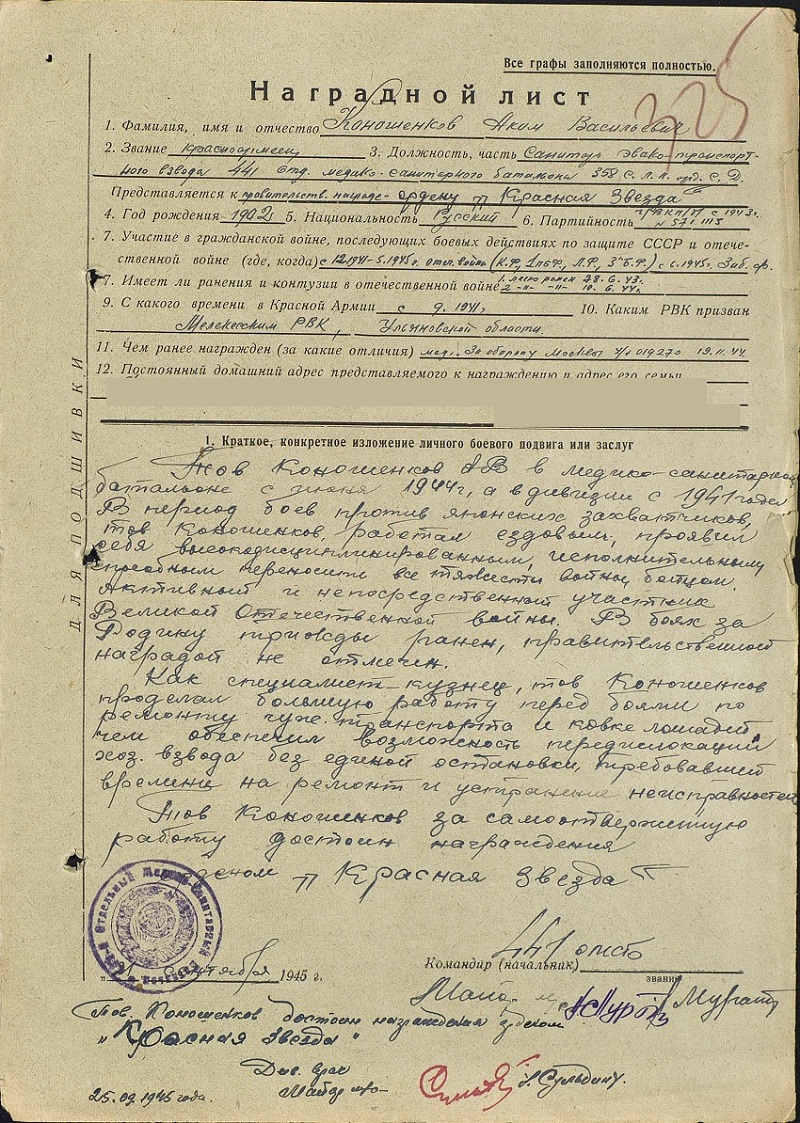 Все графы заполняются полностью.
325
Наградной лист
1. Фамилия, имя и отчество Коношенков Аким Васильевич
2. Звание красноармеец 3. Должность, часть Санитар эвако-транспорт-
ного взвода 441 отд. медико-санитарного батальона 358 С.Л.Л. орд. С. Д.
Представляется к правительств. награде - ордену "Красная Звезда"
4. Год рождения 1902 5. Национальность Русский 6. Партийность ВКП/б/ с 1943г.
N 571 1115
7. Участие в гражданской войне, последующих боевых действиях по защите СССР и отече-
ственной войне (где, когда) с 12.1941-5.1945г. отеч. война (К.Ф, 1 ПБФ, Л.Ф, 3 П.Б.Ф.) с 6.1945г. Заб. ф.
7. Имеет ли ранения и контузии в отечественной войне 1. легко ранен 28.6.43.
2 -"- -"- 10.6.44г.
9. С какого времени в Красной Армии с 9.1941г 10. Каким РВК призван
Мелекесским РВК, Ульяновской области.
11. Чем ранее награжден (за какие отличия) мед. За оборону Москвы У/с 019270 19.11.44
12. Постоянный домашний адрес представляемого к награждению и адрес его семьи
ДЛЯ ПОДШИВКИ
1. Краткое, конкретное изложение личного боевого подвига или заслуг
Тов Коношенков АВ в медико-санитарном
батальоне с июня 1944г, а в дивизии с 1941 года
В период боев против японских захватчиков,
тов Коношенков, работал ездовым, проявил
себя высокодисциплинированным, исполнительному
способным переносить все тяжести войны бойцом.
Активный и непосредственный участник
Великой Отечественной войны. В боях за
Родину трижды ранен, правительственной
наградой не отмечен.
Как специалист-кузнец, тов Коношенков
проделал большую работу перед боями по
ремонту гуж. транспорта и ковке лошадей
чем обеспечил возможность передислокации
хоз. взвода без единой остановки, требовавшей
времени на ремонт и устранение неисправностей
Тов Коношенков за самоотверженную
работу достоин награждения
орденом "Красная Звезда"
441 омсб
Командир (начальник)
звание
сентября 1945 г.
Майор м/с Мурат
Тов. Коношенков достоин награждения орденом
"Красная Звезда"
Див. врач
Майор м/с Сульдин.
25.09.1945 года.